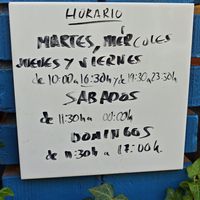 HORARIO
MARTES, MIÉRCOLES
JUEVES Y VIERNES
de 10:00 a 16:30h y de 19:30 a 23:30h
SABADOS
de 11:30h a 00:00h
DOMINGOS
de 11:30h a 17:00h.